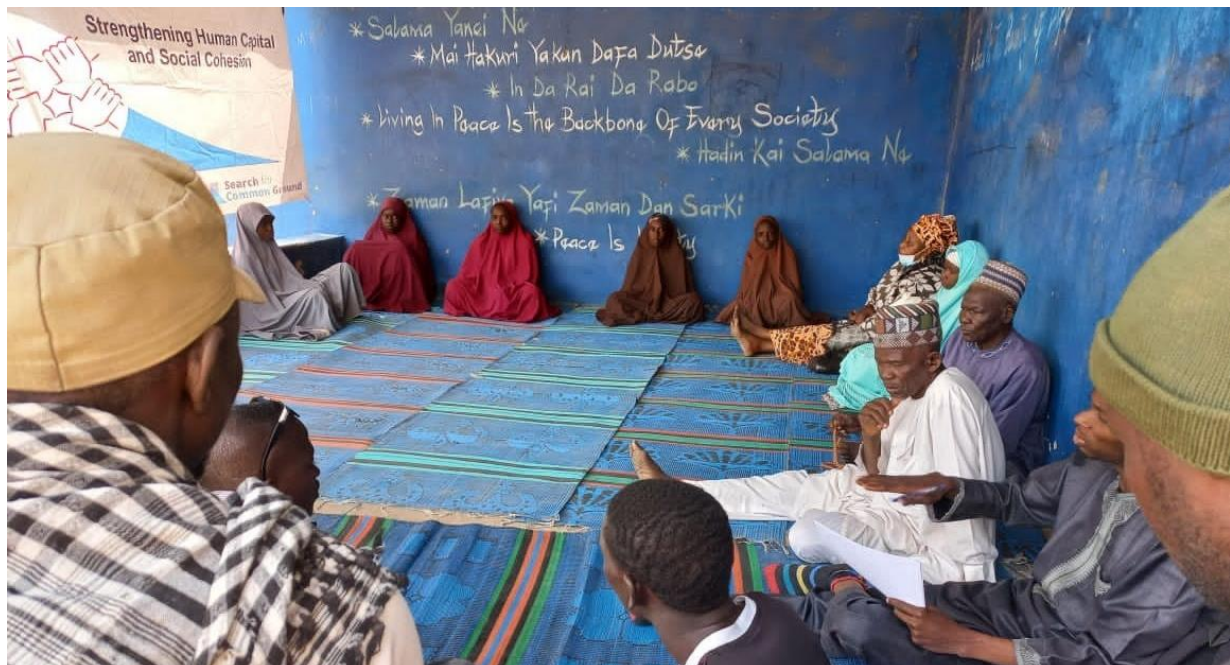 Strengthening Human Capital
and Social Cohesion
Search for
Common Ground
* Salama Yanci Ne
* Mai Hakuri Yakun Dafa Dutse
* In Da Rai Da Rabo
* Living In Peace Is the Backbone Of Every Society
* Hadin Kai Salama Ne
* Zaman Lafiya Yafi Zaman Dan Sarki
* Peace Is